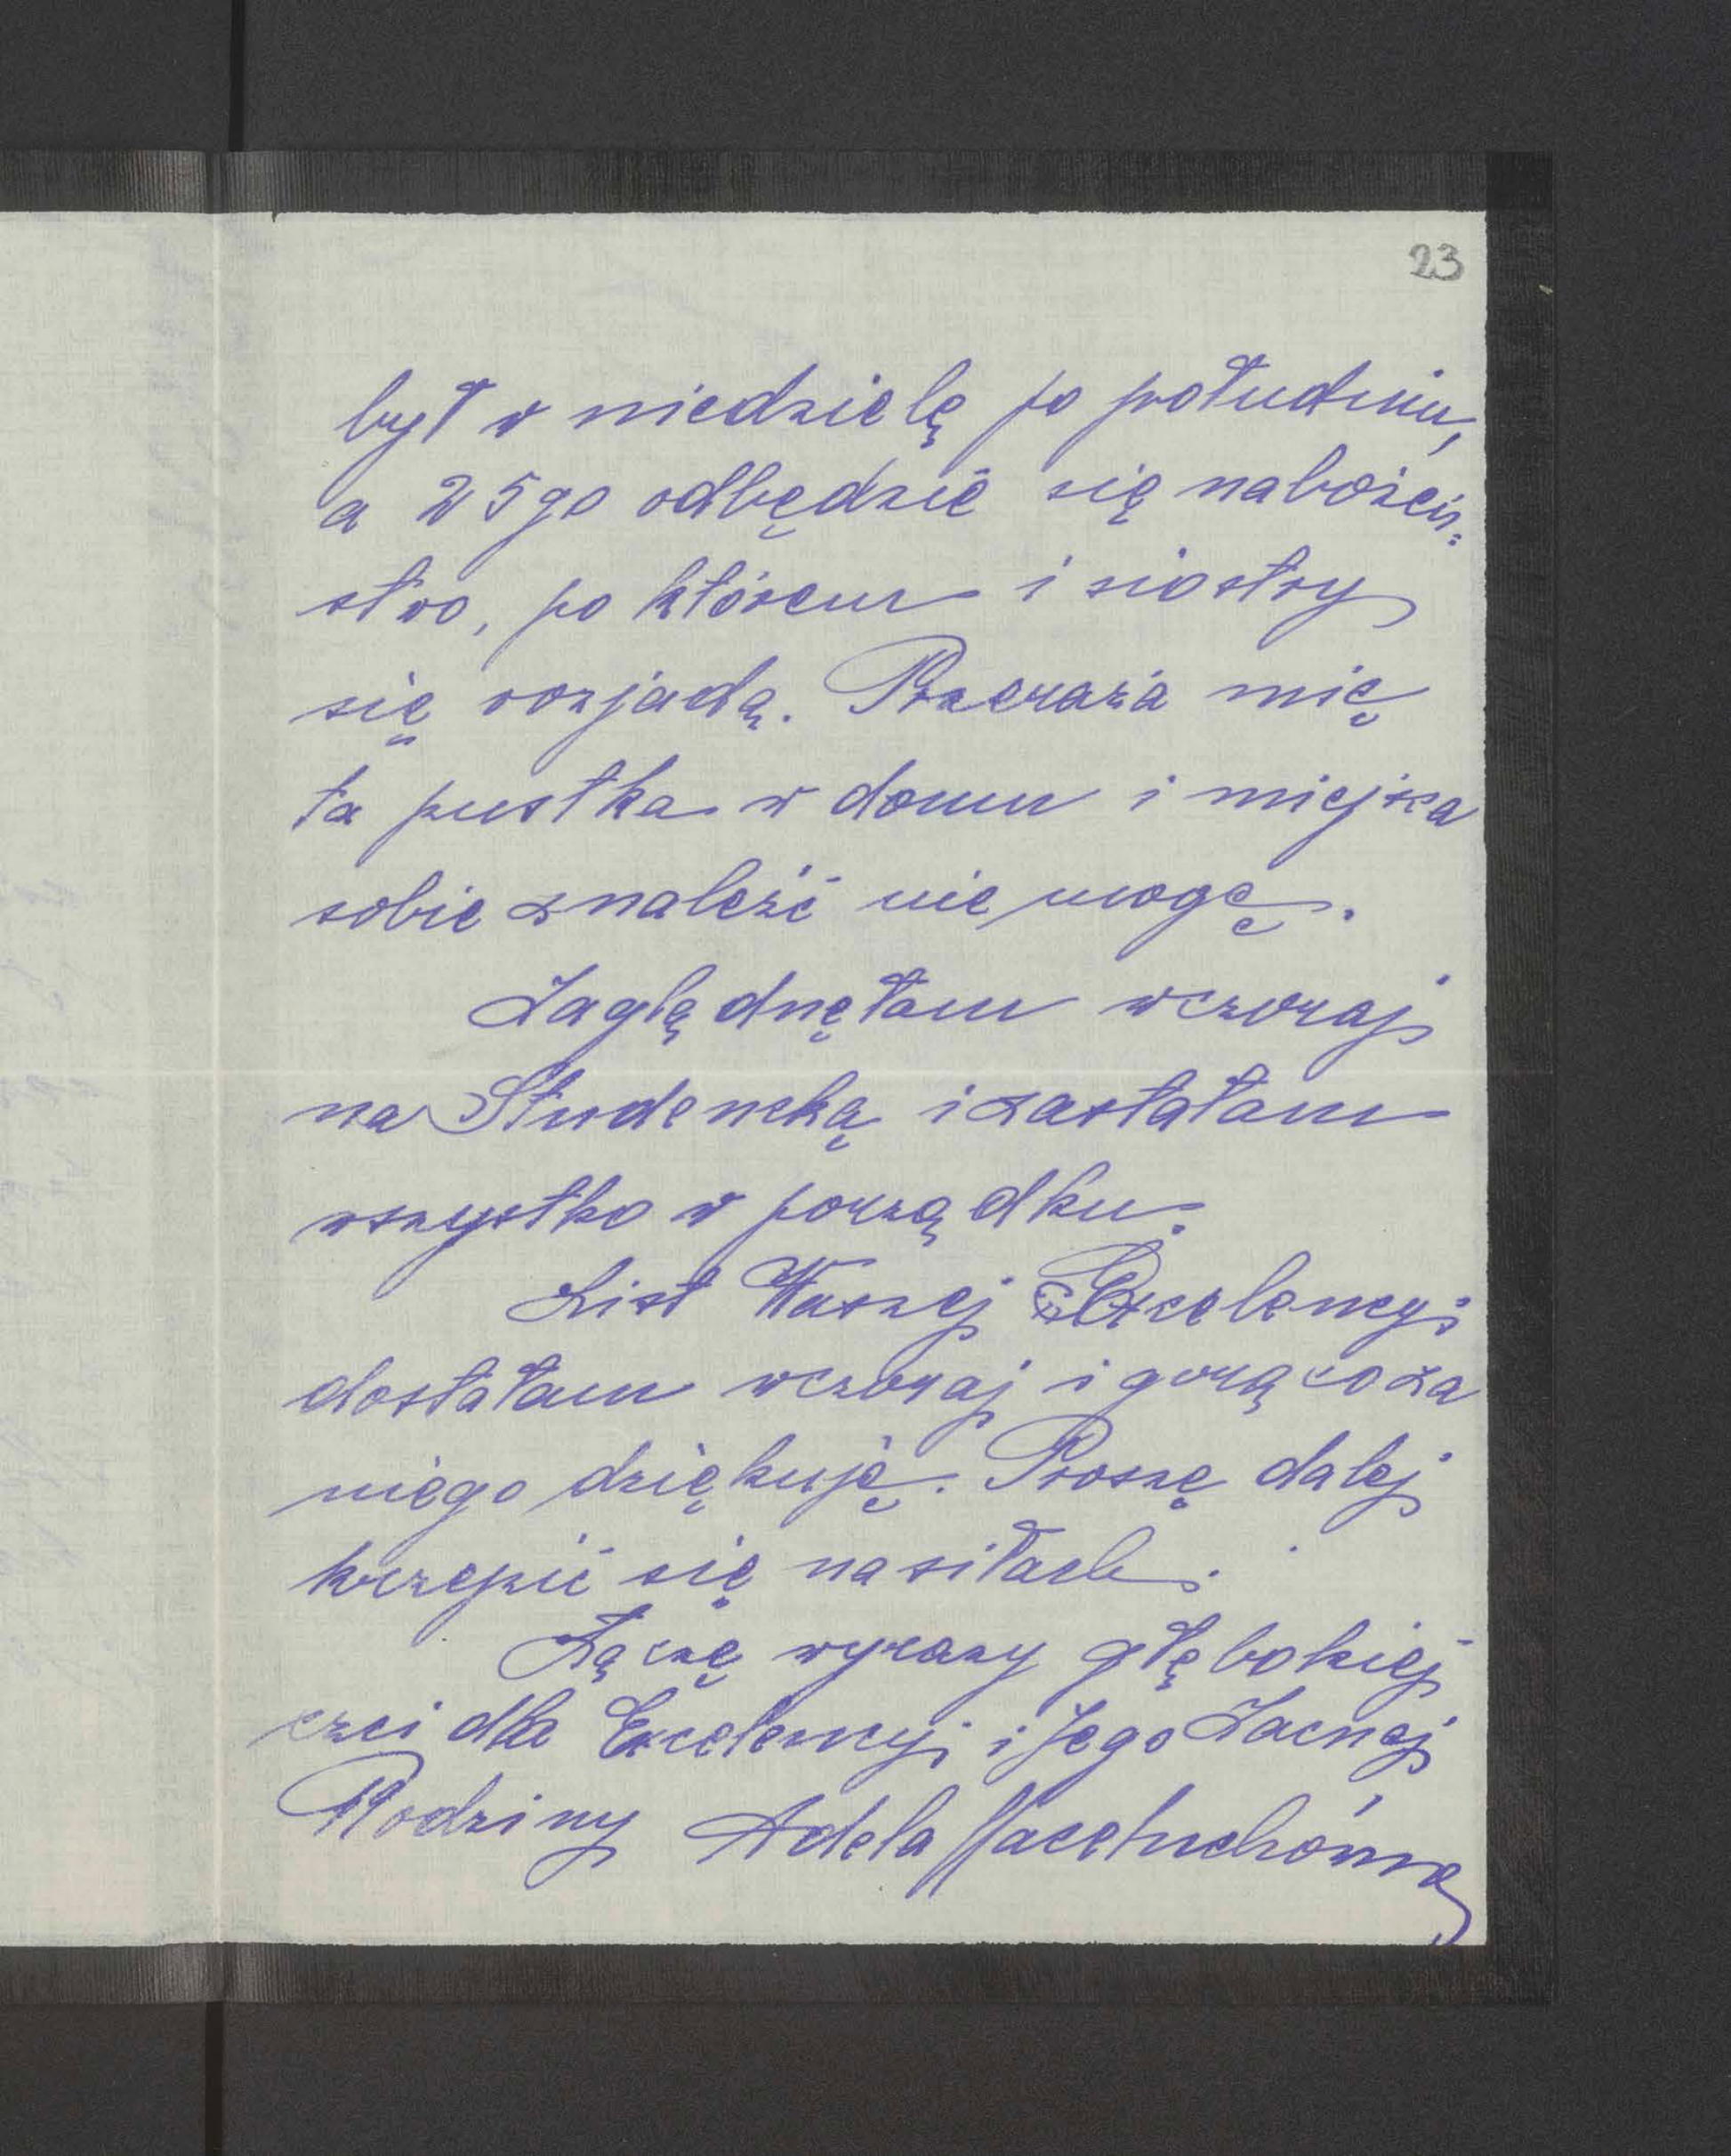 23
był w niedzielę po południu,
a 25go odbędzie się nabożeń=
stwo, po którem i siostry
się rozjadą. Przeraża mię
ta pustka w domu i miejsca
sobie znaleźć nie mogę.
Zaglądnęłam wczoraj
na Studencką i zastałam
wszystko w porządku.
List Waszej Excelencyi
dostałam wczoraj i gorąco za
niego dziękuję. Proszę dalej
krzepić się na siłach.
Łączę wyrazy głębokiej
czci dla Excelencyi i Jego Zacnej
Rodziny Adela